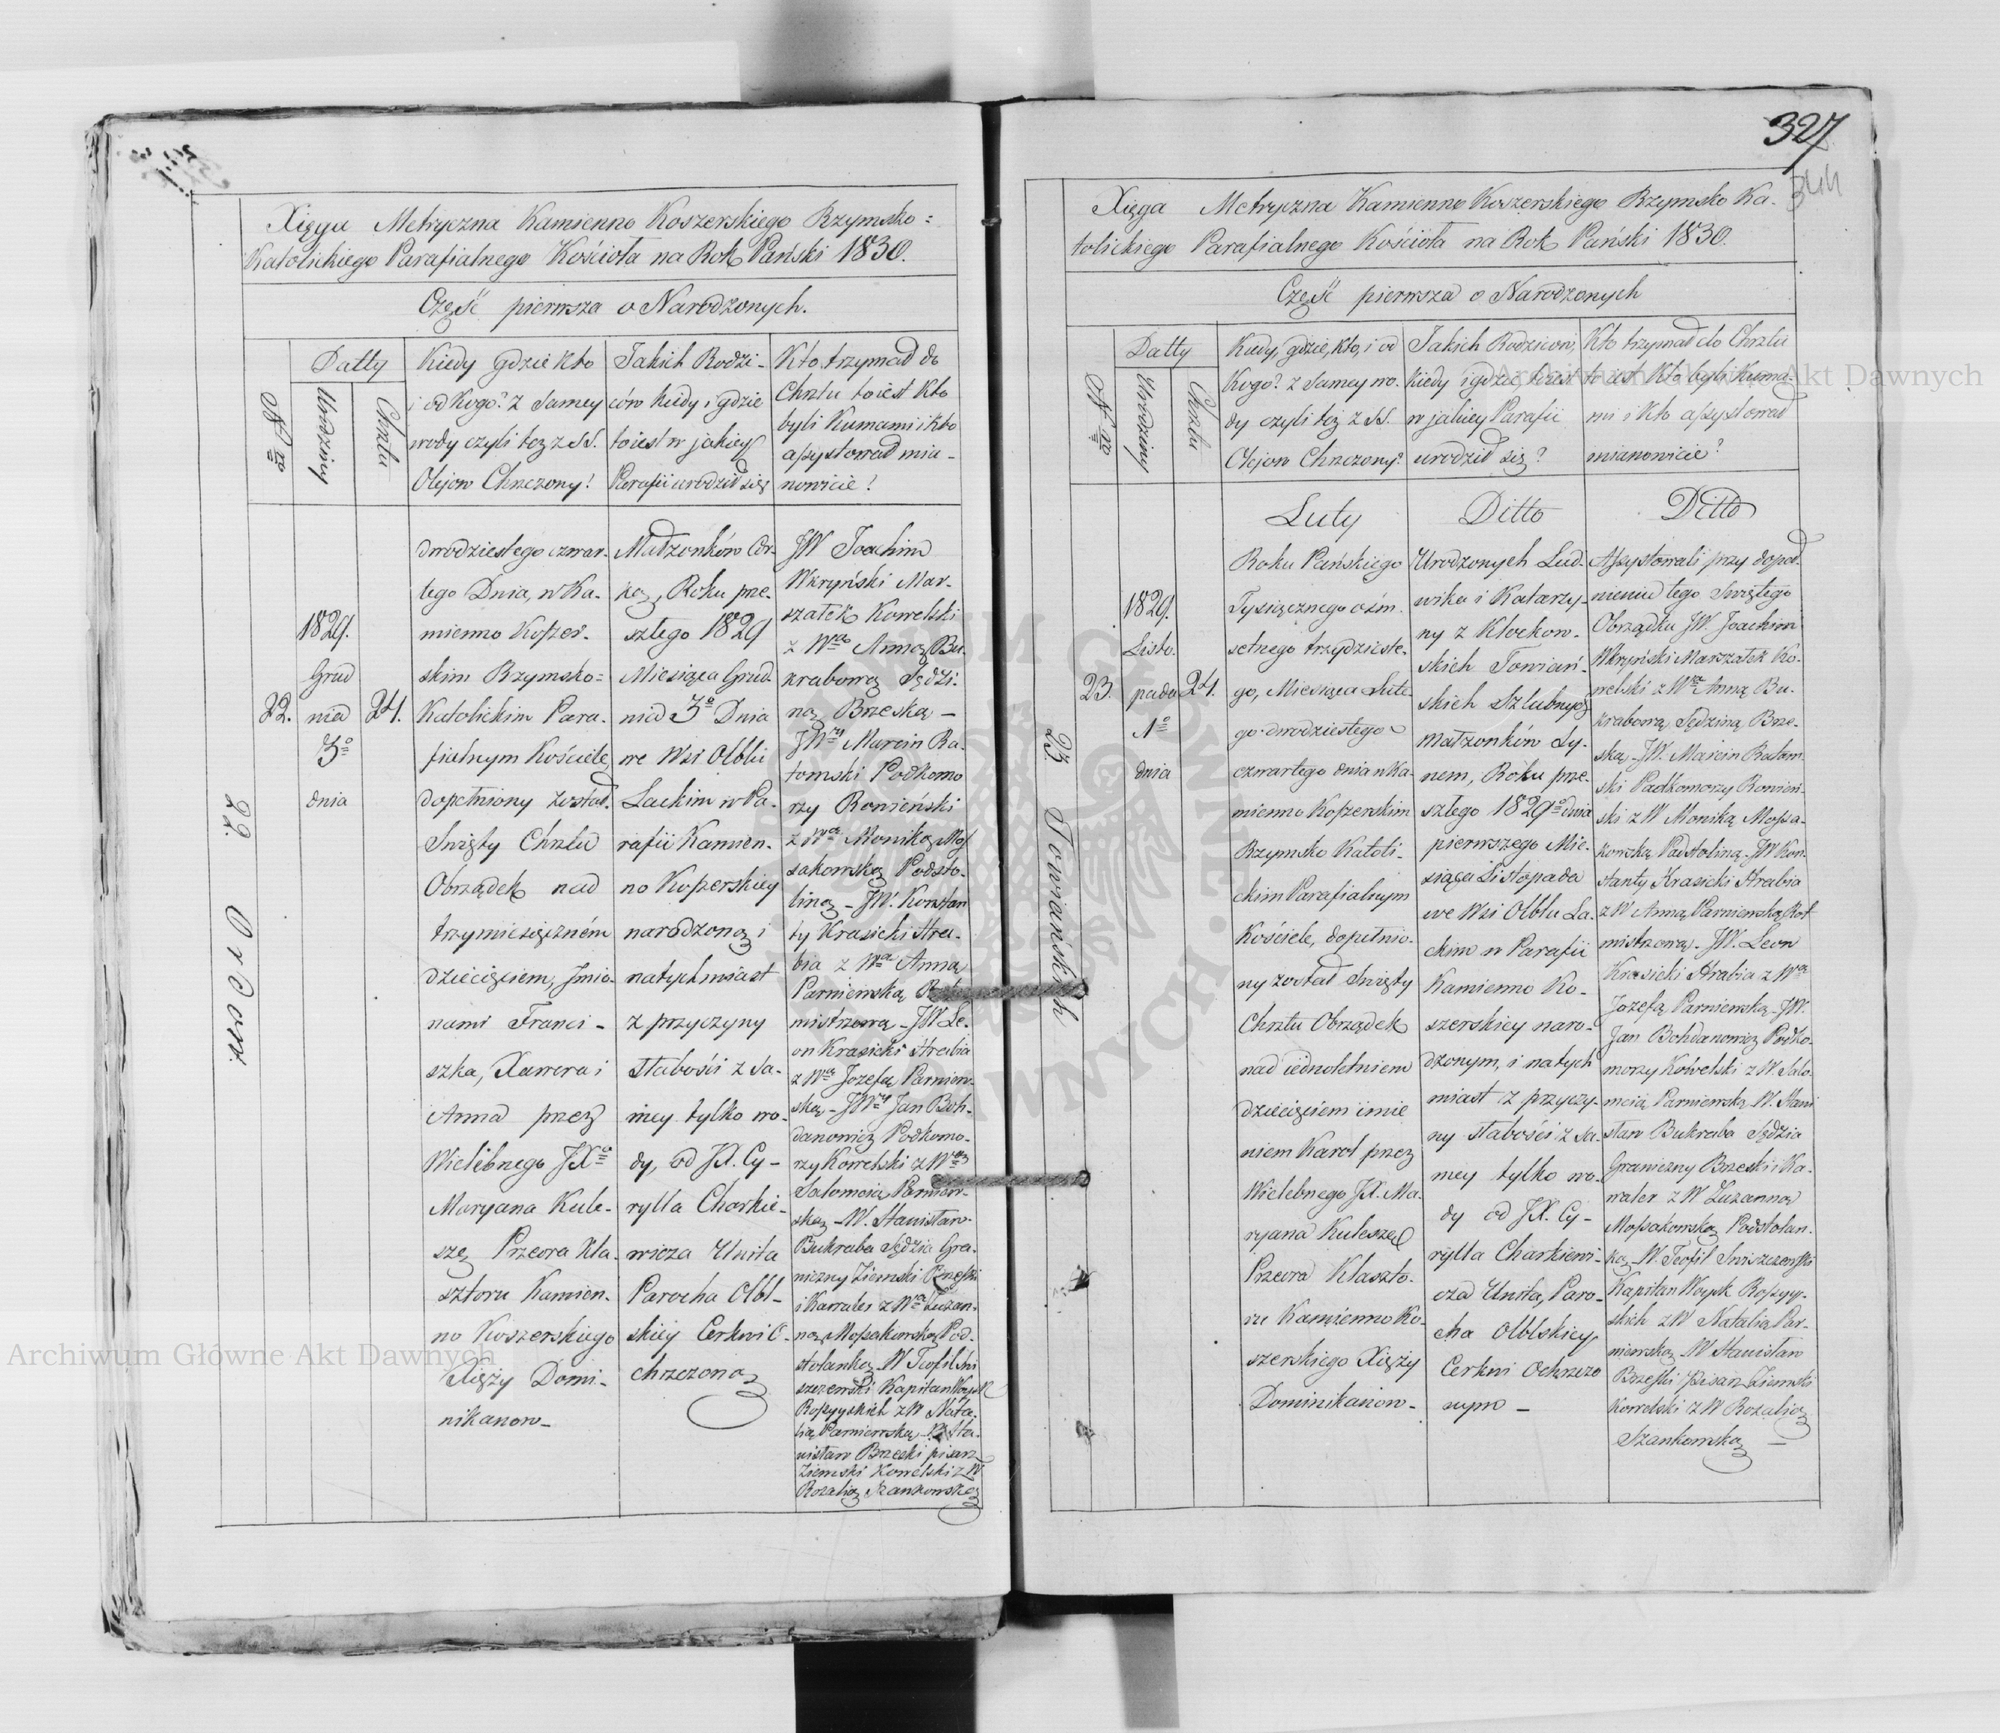 327
344
Xięga Metryczna Kamienno Koszerskiego Rzymsko =
Katolickiego Parafialnego Kościoła na Rok Pański 1830.
Część pierwsza o Narodzonych.
Datty
Nro
Urodziny
Chrztu
Kiedy gdzie kto
i od kogo? z Samey
wody czyli też z SS.
Olejow Chrzczony?
Jakich Rodzi-
ców kiedy i gdzie
to iest w jakiey
Parafii urodził się?
Kto trzymał do
Chrztu to iest kto
byli Kumami i kto
assystował mia-
nowicie?
22.
1829.
Grud
nia
3º
dnia
24.
dwudziestego czwar-
tego Dnia, w Ka-
mienno Koszer-
skim Rzymsko=
Katolickim Para-
fialnym Kościele,
dopełniony został
Swięty Chrztu
Obrządek nad
trzymiesięczném
dziecięciem, Jmio-
nami Franci-
szka, Xawera i
Anna przez
Wielebnego JXa
Maryana Kule-
szę Przeora Kla-
sztoru Kamien-
no Koszerskiego
Xięży Domi-
nikanow-
Małzonków Cor-
ką, Roku prze-
szłego 1829
Miesiąca Grud
nia 3º Dnia
we Wsi Olblu
Lackim w Pa-
rafii Kamien-
no Koszerskiey
narodzoną i
natychmiast
z przyczyny
słabości z sa-
mey tylko wo-
dy, od JX. Cy-
rylla Charkie-
wicza Unita
Parocha Olbl-
skiey Cerkwi o-
chrzczoną
JW Joachim
Wkryński Mar-
szałek Kowelski
z Wną Anną Bu-
krabową Sędzi-
ną Brzeską -
JWny Marcin Ra-
tomski Podkomo
rzy Rowieński
z Wną Moniką Mos
sakowską Podsto-
liną - JW. Konstan
ty Krasicki Hra-
bia z Wną Anną
Parniewską Rot
mistrzową - JW Le-
on Krasicki Hrabia
z Wną Jozefą Parniew-
ską - JWny Jan Boh-
danowicz Podkomo-
rzy Kowelski z Wną
Salomeią Parniew-
ską - W. Stanisław
Bukraba Sędzia Gra-
niczny Ziemski Brzeski
i Kawaler z Wną Zuzan-
ną Mossakowską Pod-
stolanką W Teofil Swi
szczewski Kapitan Woysk
Rossyyskich z W Nata-
lią Parniewską - W Sta-
nisław Brzeski pisarz
Ziemski Kowelski z W
Rozalią Szankowską
22
Xięga Metryczna Kamienno Koszerskiego Rzymsko Ka-
tolickiego Parafialnego Kościoła na Rok Pański 1830.
Część pierwsza o Narodzonych
Datty
Nro
Urodziny
Chrztu
Kiedy, gdzie, kto, i od
kogo? z Samey wo-
dy czyli też z SS.
Olejow Chrzczony?
Jakich Rodzicow,
kiedy i gdzie to iest
w jakiey Parafii
urodził się?
Kto trzymał do Chrztu
to iest kto byli Kuma-
mi i kto assystował
mianowicie?
Luty
Ditto
Ditto
23 Towiańskich
23.
1829.
Listo-
pada
1º
dnia
24.
Roku Pańskiego
Tysiącznego ośm-
setnego trzydzieste-
go, Miesiąca Lute-
go dwudziestego
czwartego dnia w Ka-
mienno Koszerskim
Rzymsko Katoli-
ckim Parafialnym
Kościele, dopełnio-
ny został Swięty
Chrztu Obrządek
nad iednoletniem
dziecięciem imie
niem Karol przez
Wielebnego JX. Ma-
ryana Kuleszę
Przeora Klaszto-
ru Kamienno Ko-
szerskiego Xięży
Dominikanow-
Urodzonych Lud-
wika i Katarzy-
ny z Kłockow-
skich Towiań-
skich Szlubnych
Małzonków Sy-
nem, Roku prze-
szłego 1829º dnia
pierwszego Mie-
siąca Listopada
we Wsi Olblu La-
ckim w Parafii
Kamienno Ko-
szerskiey naro-
dzonym, i natych
miast z przyczy-
ny słabości z sa-
mey tylko wo-
dy od JX. Cy-
rylla Charkiewi-
cza Unita, Paro-
cha Olblskiey
Cerkwi Ochrzczo
nym -
Assystowali przy dopeł-
nieniu tego Swiętego
Obrządku JW. Joachim
Wkryński Marszałek Ko-
welski z Wną Anną Bu-
krabową Sędziną Brze-
ską - JW. Marcin Ratom-
ski Podkomorzy Rowień-
ski z W Moniką Mossa-
kowską Podstoliną - JW Kon-
stanty Krasicki Hrabia
z W Anną Parniewską Rot
mistrzową - JW. Leon
Krasicki Hrabia z Wną
Jozefą Parniewską - JW.
Jan Bohdanowicz Podko-
morzy Kowelski z W Salo-
meią Parniewską W. Stani
sław Bukraba Sędzia
Graniczny Brzeski i Ka-
waler z W Zuzanną
Mossakowską Podstolan-
ką - W. Teofil Swiszczewski
Kapitan Woysk Rossyy-
skich z W Natalią Par-
niewską - W Stanisław
Brzeski pisarz Ziemski
Kowelski z W Rozalią
Szankowską -
Archiwum Główne Akt Dawnych
Archiwum Główne Akt Dawnych